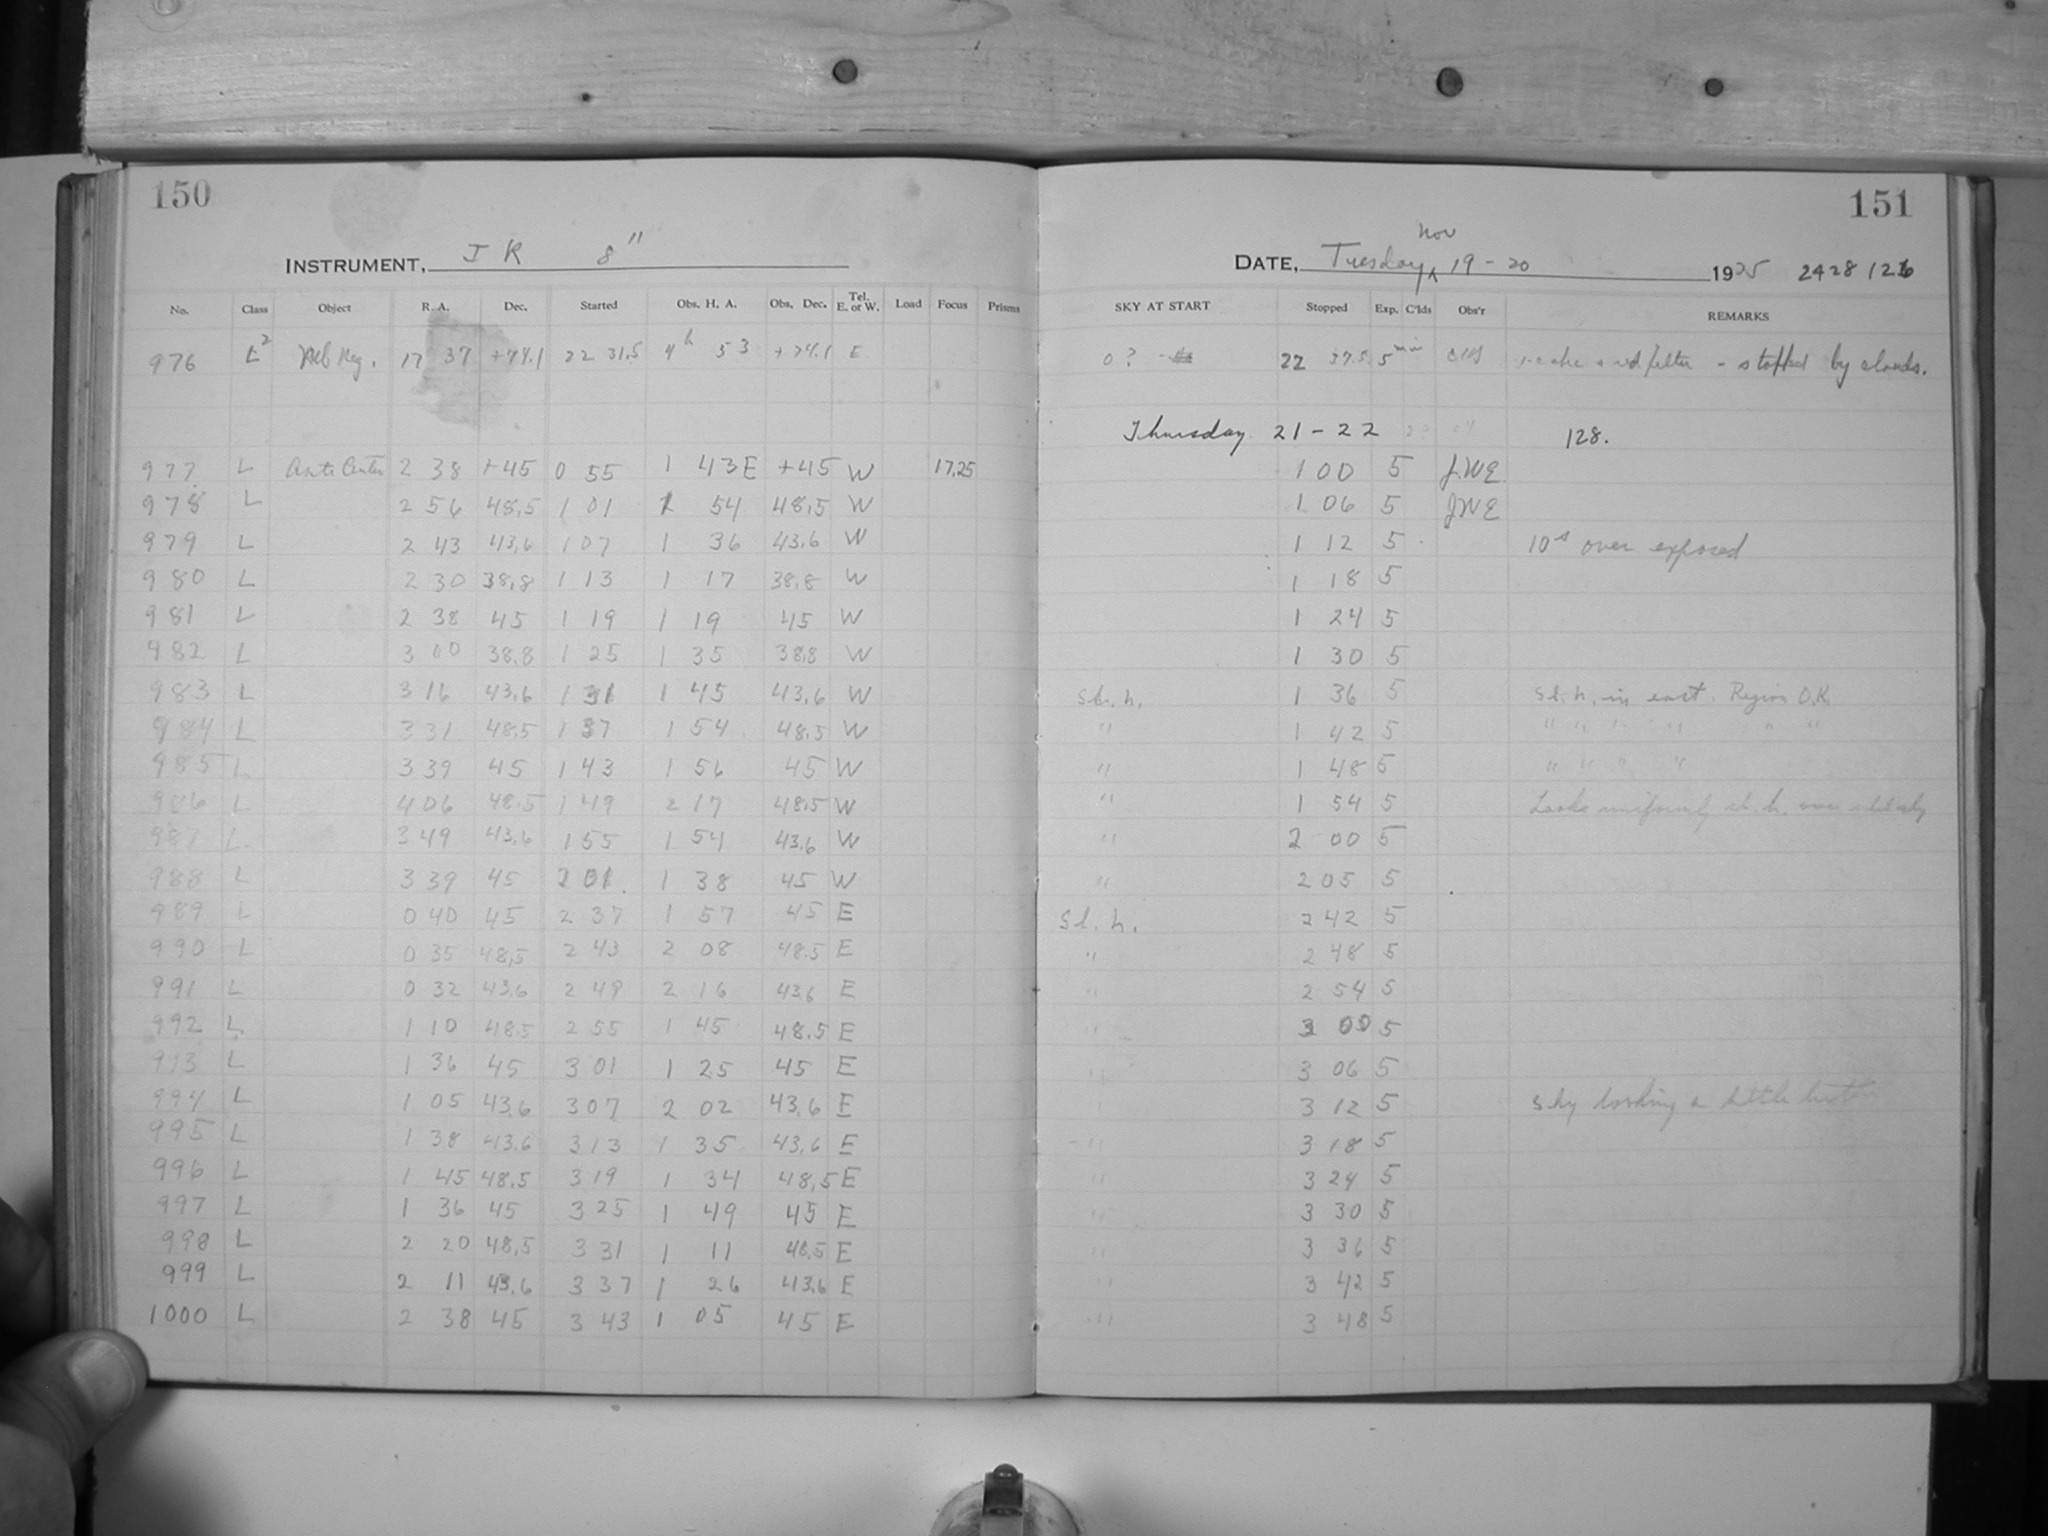 150
151
INSTRUMENT, J K 8"
DATE, Tuesday Nov 19-20 1935 2428126
No. Class Object R. A. Dec. Started Obs. H. A. Obs. Dec. Tel. E. or W. Load Focus Prisms SKY AT START Stopped Exp. C'lds Obs'r REMARKS
976 L² Reg. 17 37 +74.1 22 31.5 4h 53 +74.1 E 0 ? 22 37.5 5 min filter - stopped by clouds.
Thursday 21-22 128.
977 L Anti Center 2 38 +45 0 55 1 43 E +45 W 17.25 1 00 5 JWE
978 L 2 56 48.5 1 01 1 54 48.5 W 1 06 5 JWE
979 L 2 43 43.6 1 07 1 36 43.6 W 1 12 5 10s over exposed
980 L 2 30 38.8 1 13 1 17 38.8 W 1 18 5
981 L 2 38 45 1 19 1 19 45 W 1 24 5
982 L 3 00 38.8 1 25 1 35 38.8 W 1 30 5
983 L 3 16 43.6 1 31 1 45 43.6 W Sl. h. 1 36 5 Sl. h. in east. Region O.K.
984 L 3 31 48.5 1 37 1 54 48.5 W " 1 42 5 " " " " " "
985 L 3 39 45 1 43 1 56 45 W " 1 48 5 " " " "
986 L 4 06 48.5 1 49 2 17 48.5 W " 1 54 5 Looks uniformly sl. h. over sky
987 L 3 49 43.6 1 55 1 54 43.6 W " 2 00 5
988 L 3 39 45 2 01 1 38 45 W " 2 05 5
989 L 0 40 45 2 37 1 57 45 E Sl. h. 2 42 5
990 L 0 35 48.5 2 43 2 08 48.5 E " 2 48 5
991 L 0 32 43.6 2 49 2 16 43.6 E " 2 54 5
992 L 1 10 48.5 2 55 1 45 48.5 E " 3 00 5
993 L 1 36 45 3 01 1 25 45 E " 3 06 5
994 L 1 05 43.6 3 07 2 02 43.6 E 3 12 5 Sky looking a little
995 L 1 38 43.6 3 13 1 35 43.6 E " 3 18 5
996 L 1 45 48.5 3 19 1 34 48.5 E " 3 24 5
997 L 1 36 45 3 25 1 49 45 E " 3 30 5
998 L 2 20 48.5 3 31 1 11 48.5 E " 3 36 5
999 L 2 11 43.6 3 37 1 26 43.6 E " 3 42 5
1000 L 2 38 45 3 43 1 05 45 E " 3 48 5